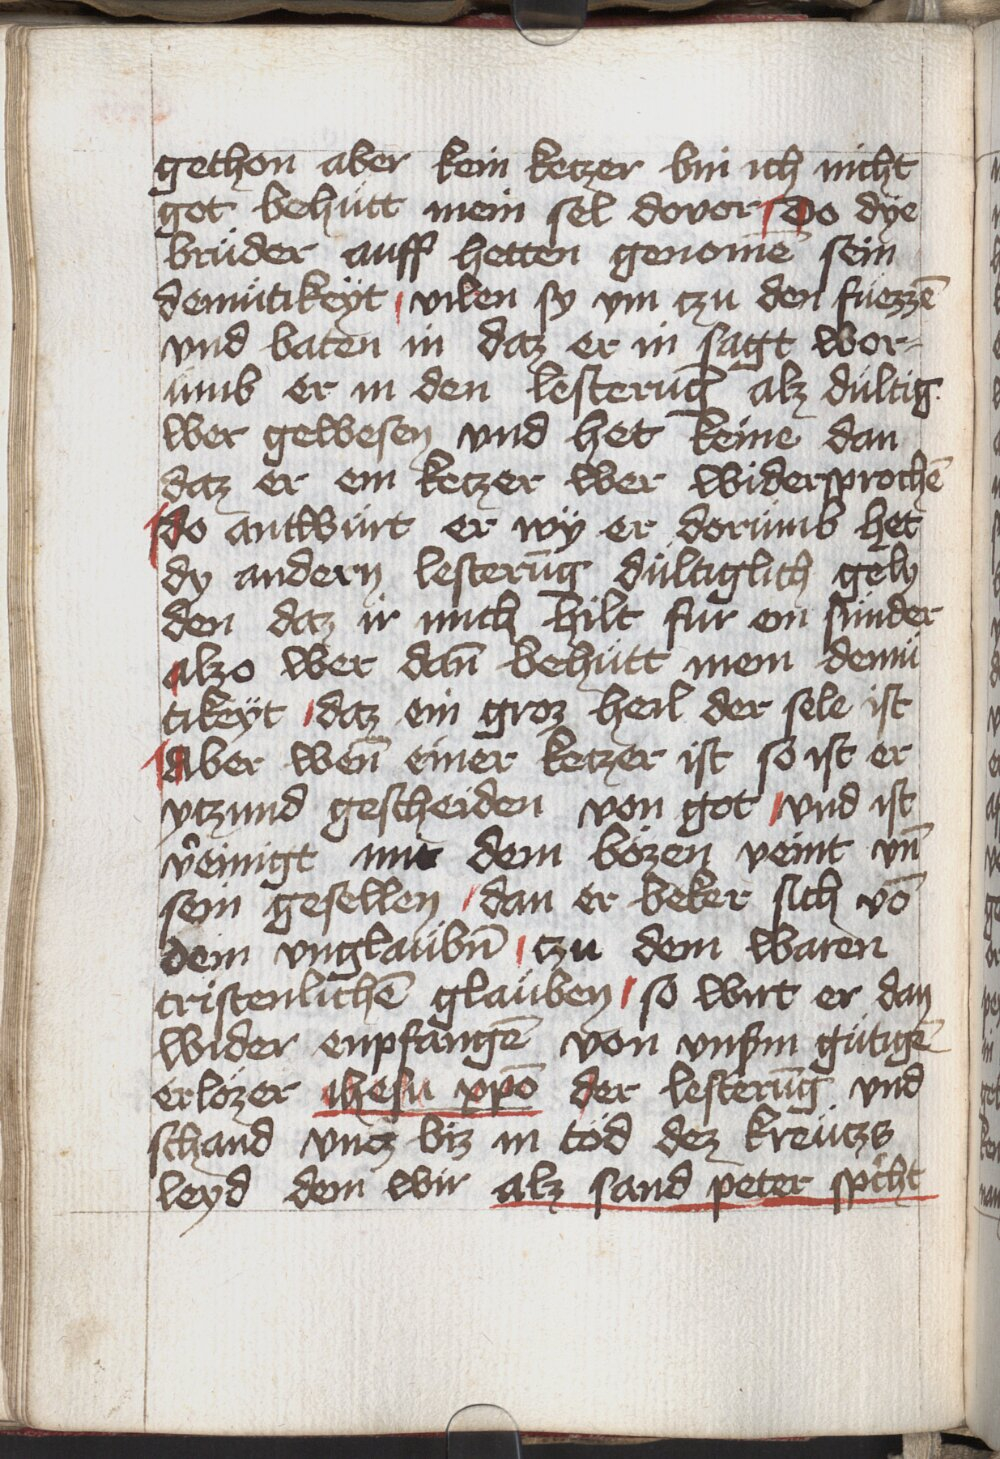 gethon aber kein ketzer bin ich nicht
got behütt mein sel dovor Do dÿe
brüder auff hetten genomē sein
demütikeÿt vilen sy ym tzu den füezzē
vnd baten in daz er in sagt wor-
umb er in den lesterūg alz dültig
wer gewesen vnd het keine dan
daz er ein ketzer wer widersprochē
Do antwürt er wÿ er dorümb het
dy andern lesterūg dültiglich gely
den daz ir mich hilt für ein sünder
alzo wer dañ behütt mein demü
tikeÿt daz ein groz heil der sele ist
Aber weñ einer ketzer ist so ist er
ytzund gescheiden von got vnd ist
v̾einigt mit dem bözen veint vn̄
sein gesellen dan er beker sich vō
dem vnglaübn̄ tzu dem waren
cristenlichē glaüben so wirt er dan
wider enpfangē von vnßm gütigē
erlözer ihesu xpō der lesterūg vnd
schand vntz biz in töd dez kreützs
leyd dem wir alz sand peter sp̾cht